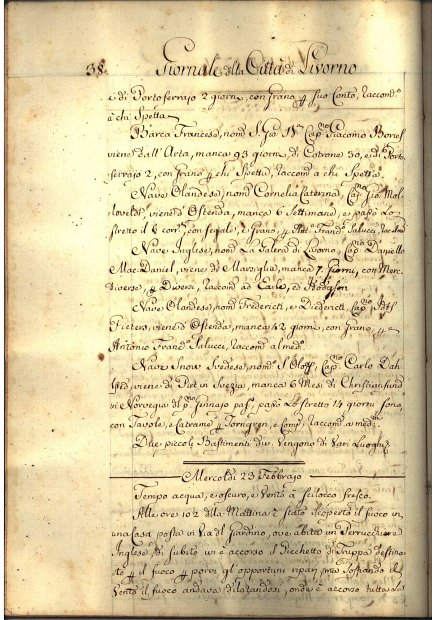 38. Giornale della Città di Livorno
e di Portoferrajo 2 giorni, con Grano p suo Conto, Raccom.
a chi Spetta
Barca Francese, nom. S. Gio Bta Cap.no Giacomo
viene dall'Arta, manca 93 giorni, di Cotrone 30, e di Porto-
ferrajo 2, con Grano p chi Spetta, Raccom. a chi Spetta.
Nave Olandese, nom. Cornelia Caterina, Cap.no Gio
viene d'Ostenda, manca 6 Settimane, e passò lo
Stretto il corr.e, con Segale, e Grano, p Franc. Salucci,
Nave Inglese, nom. La Galera di Livorno, Cap.no Daniello
Mac-Daniel, viene di Marsiglia, manca 7 Giorni, con Merc.
Diverse, p Diversi, Raccom. ad Earle, ed Hodgson
Nave Olandese, nom. Fredericti, e Diederieti, Cap.no
Pieters, viene d'Ostenda, manca 42 giorni, con Grano, p
Antonio Franc. Salucci, Raccom. al med.
Nave Snow Svedese, nom. S. Oloff, Cap.no Carlo Dah-
viene di in Svezia, manca 6 Mesi di Christiansund
in Norvegia il Gennajo pas., passò lo Stretto 14 giorni sono,
con Tavole, e Catrame p Torngren, e Comp., Raccom. a med.
Due piccoli Bastimenti div. Vengono di Vari Luoghi
Mercoledì 23 Febbrajo
Tempo acqua, e oscuro, e Vento a Scilocco fresco.
Alle ore 10 2 della Mattina è stato scoperto il fuoco in
una Casa posta in Via del Giardino, ove abita un Perrucchiere
Inglese, di subito vi è accorso il Picchetto di Truppa destina-
to p il fuoco p porvi gl'opportuni ripari, ma soffiando il
Vento il fuoco andava dilatandosi, onde è accorso tutta la